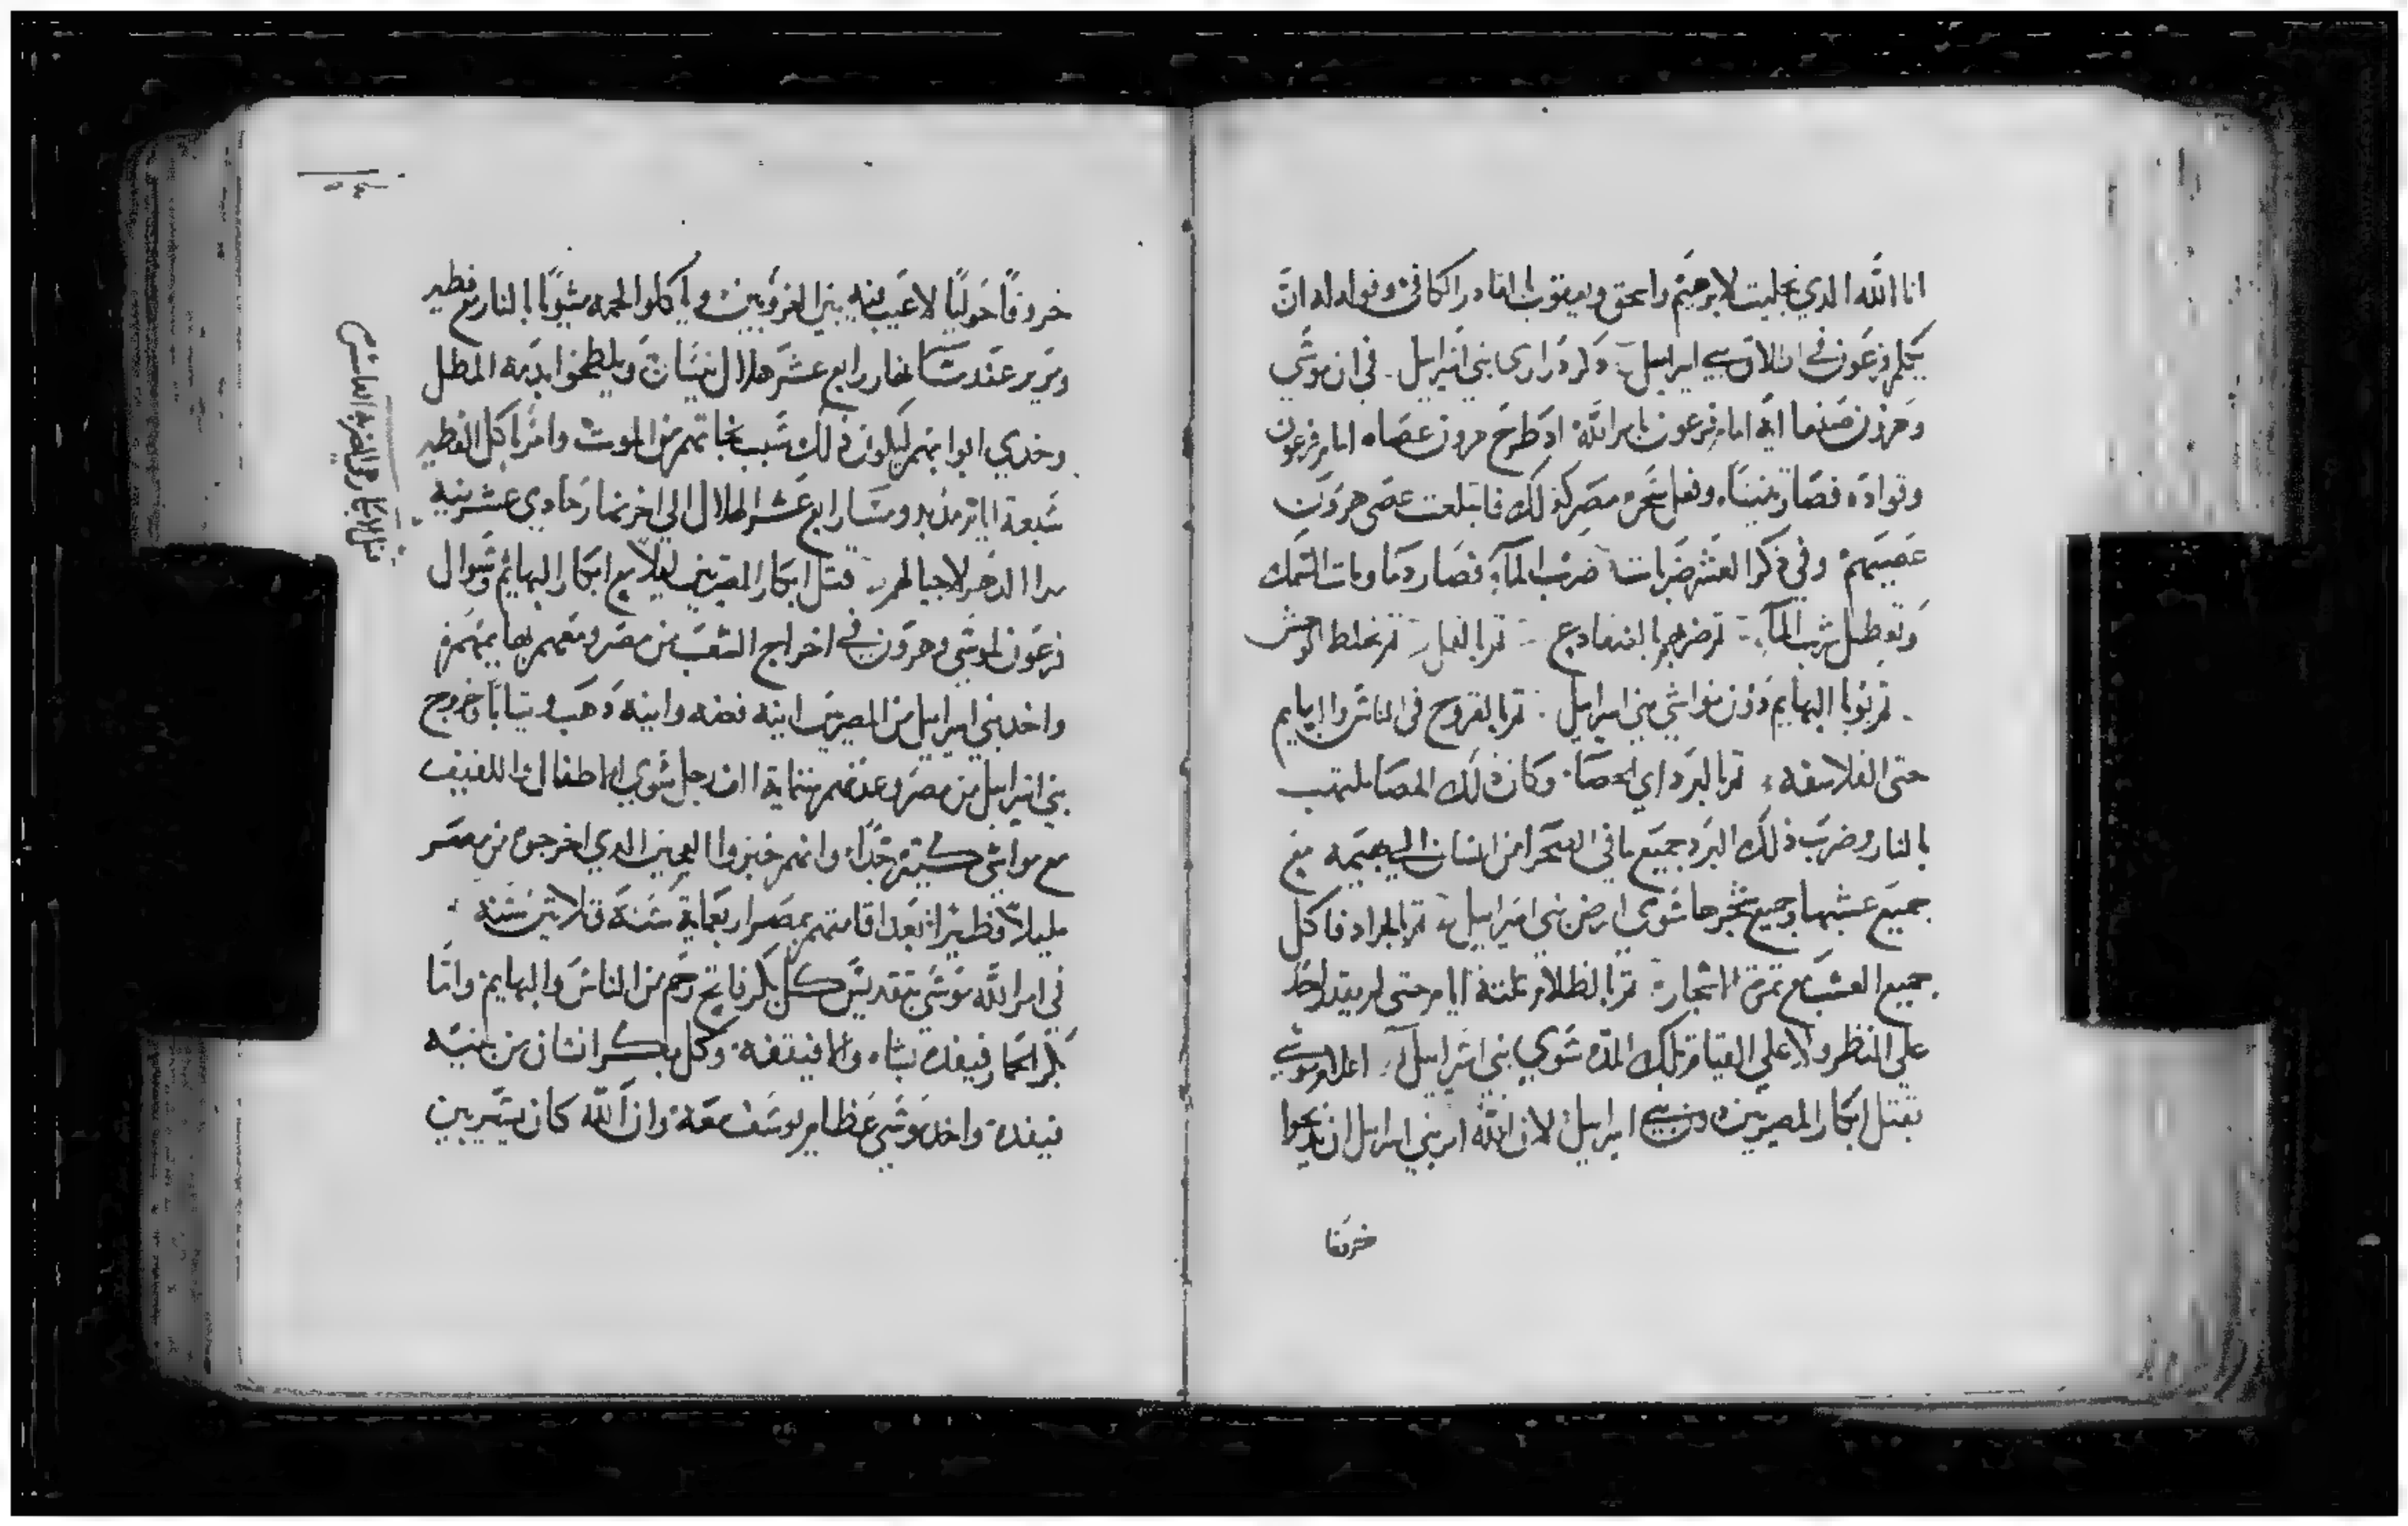 انا الله الدي تجليت لابرهيم واسحق ويعقوب القادر الكافي وقوله له ان
يكلم فرعون في اطلاق بني اسراييل ذكر دراري بني اسراييل في ان موسي
وهرون صنعا اية امام فرعون بامر الله اد طرح هرون عصاه امام فرعون
وقواده فصار تنينا وفعل سحرة مصر كذلك فابتلعت عصي هرون
عصيهم وفي ذكر العشر ضربات ضرب المآء فصار دما ومات السمك
وتعطل شرب المآء تم ضربهم بالضفادع تم بالقمل تم بخلط الوحش
تم بوبا البهايم دون مواشي بني اسراييل تم بالقروح في الناس والبهايم
حتى الفلاسفه تم بالبرد اي الحصا وكان ذلك الحصا ملتهب
بالنار وضرب ذلك البرد جميع ما في الصحرا من انسان الي بهيمه مع
جميع عشبها وجميع شجرها سوي ارض بني اسراييل تم بالجراد فاكل
جميع العشب مع تمرة الاشجار تم بالظلام تلتة ايام حتى لم يقدر احد
على النظر ولا على القيام تلك المده سوي بني اسراييل اعلام موسي
بقتل ابكار المصريين دون بني اسراييل لان الله امر بني اسراييل ان يدبحوا
خروفا
خروفا حوليا لا عيب فيه بين الغروبين وياكلوا لحمه مشويا بالنار مع فطير
ومرير عند مسا نهار رابع عشر هلال نيسان ويلطخوا بدمه المطل
وخدي ابوابهم ليكون ذلك سبب نجاتهم من الموت وامر باكل الفطير
سبعة ايام من بدو مسا رابع عشر الهلال الي اخر نهار حادي عشرينه
مدا الدهر لاجيالهم قتل ابكار المصريين ليلا مع ابكار البهايم وسوال
فرعون لموسي وهرون في اخراج الشعب من مصر ومعهم بهايمهم
واخد بني اسراييل من المصريين انية فضه وانية دهب وتيابا وخروج
بني اسراييل من مصر وعدتهم ستماية الف رجل سوي الاطفال واللفيف
مع مواشي كتيرة جدا وانهم خبزوا العجين الدي اخرجوه من مصر
مليلا فطيرا بعد اقامتهم بمصر اربعماية سنة وتلاتين سنة
في امر الله موسي بتقديس كل بكر فاتح رحم من الناس والبهايم واما
بكر الحمار فيفده بشاه والا فيقفه وكل بكر انسان من بنيه
فيفده واخد موسي عظام يوسف معه وان الله كان يسير بين